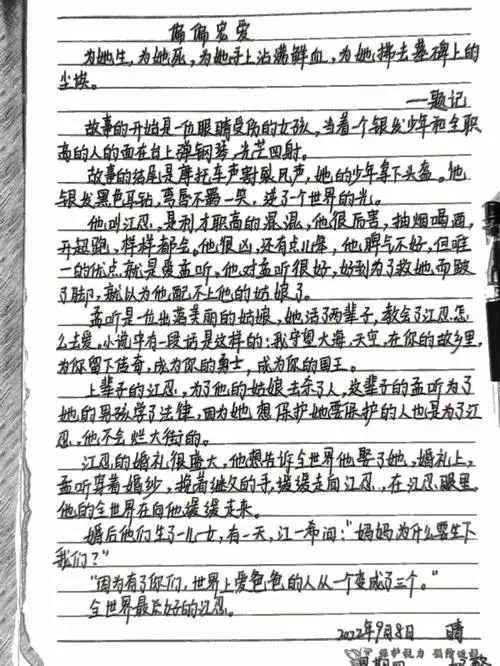 偏偏宠爱
为她生，为她死，为她手上沾满鲜血，为她拂去墓碑上的
尘埃。
——题记
故事的开始是一位眼睛受伤的女孩，当着一个银发少年和全职
高的人的面在台上弹钢琴，光芒四射。
故事的结尾是摩托车声割破风声，她的少年拿下头盔。他
银发黑色耳钻，桀骜不羁一笑，逆了一个世界的光。
他叫江忍，是利才职高的混混，他很厉害，抽烟喝酒，
开超跑，样样都会。他很凶，还有点儿燥，他脾气不好，但唯
一的优点就是爱孟听。他对孟听很好，好到为了救她而跛
了脚，就以为他配不上他的姑娘了。
孟听是一位出落美丽的姑娘，她活了两辈子，教会了江忍怎
么去爱。小说中有一段话是这样的：我守望大海，天空，在你的故乡里，
为你留下传奇，成为你的勇士，成为你的国王。
上辈子的江忍，为了他的姑娘去杀了人，这辈子的孟听为了
她的男孩学了法律，因为她想保护她要保护的人也是为了江
忍，他不会烂大街的。
江忍的婚礼很盛大，他想告诉全世界他娶了她，婚礼上，
孟听穿着婚纱，挽着继父的手，缓缓走向江忍，在江忍眼里，
他的全世界在向他缓缓走来。
婚后他们生了一儿一女，有一天，江一希问：“妈妈为什么要生下
我们？”
“因为有了你们，世界上爱爸爸的人从一个变成了三个。”
全世界最好好的江忍。
2022年9月8日 晴
保护视力 预防近视
星期四